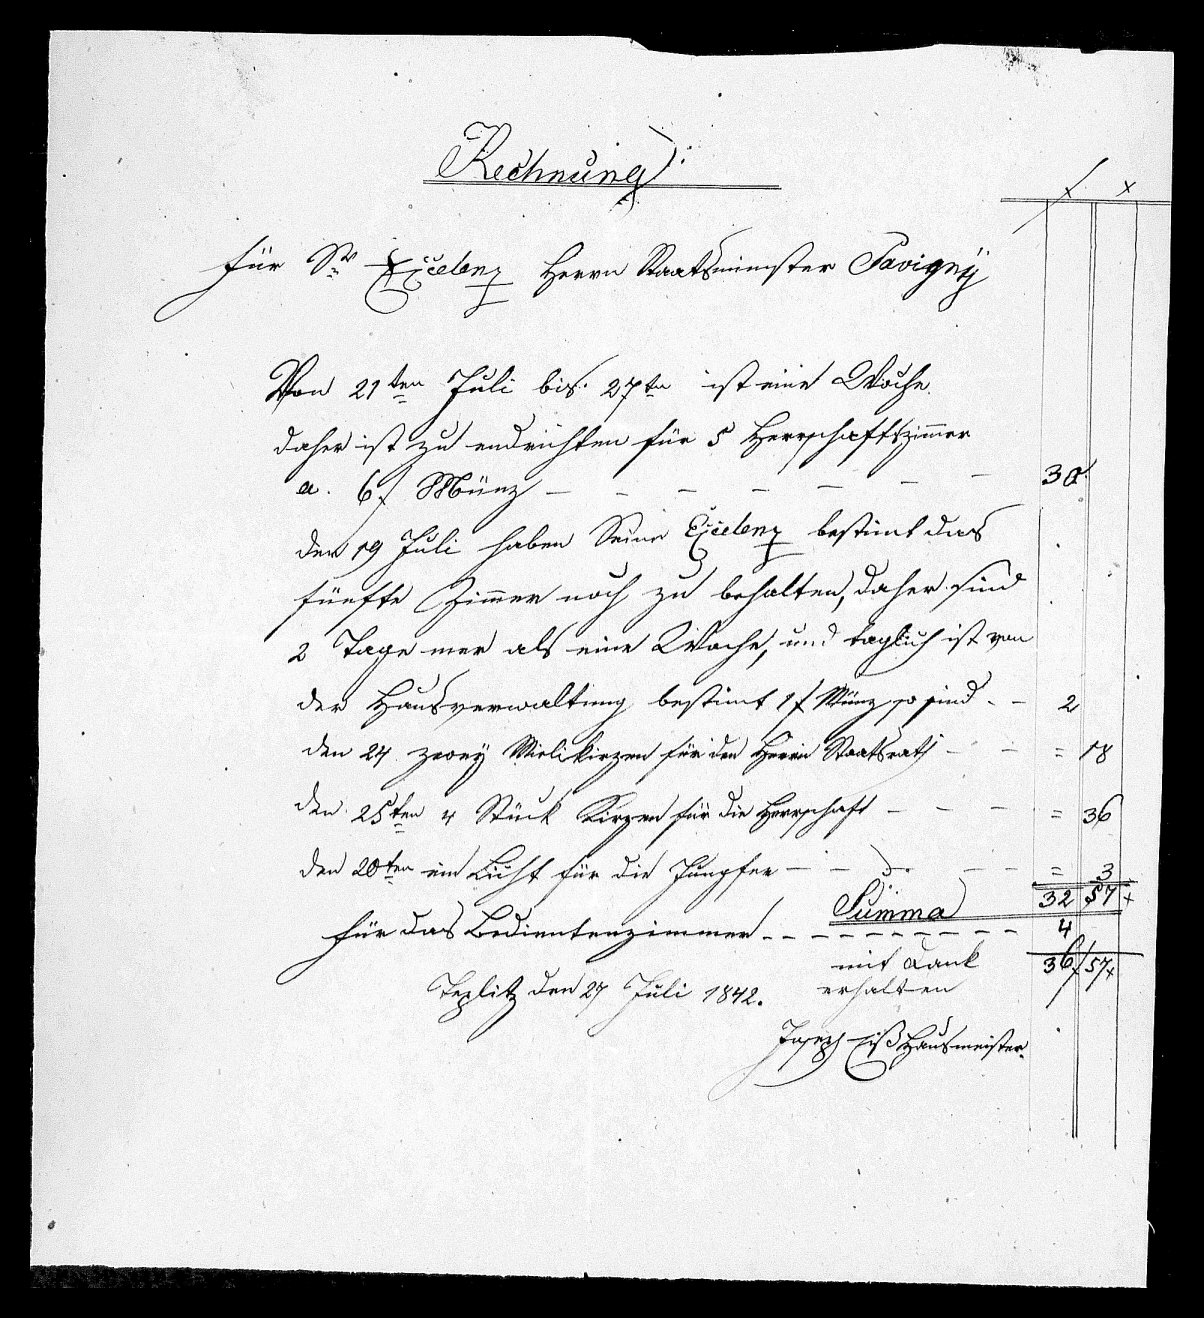 Rechnung
f x
für Sr Excelenz Herrn Staatsminister Savigny
Von 21ten Juli bis 27ten ist eine Woche.
daher ist zu endrichten für 5 Herrschaftszimmer
a. 6 f Münz — — — — — — — 30
den 19 Juli haben Seine Excelenz bestimt das
fünfte Zimmer noch zu behalten, daher sind
2 Tage mer als eine Woche, und täglich ist von
der Hausverwaltung bestimt 1 f Münz so sind - - 2
den 24 zwey Millikirzen für den Herrn Staatsrath — — — = 18
den 25ten 4 Stück Kirzen für die Herrschaft — — — — = 36
den 20ten ein Licht für die Jungfer — — — — — = 3
Summa 32 57 x
für das Bedientenzimmer 4
mit Dank 36 f 57 x
Teplitz den 27 Juli 1842. erhalten
Joseph Hausmeister